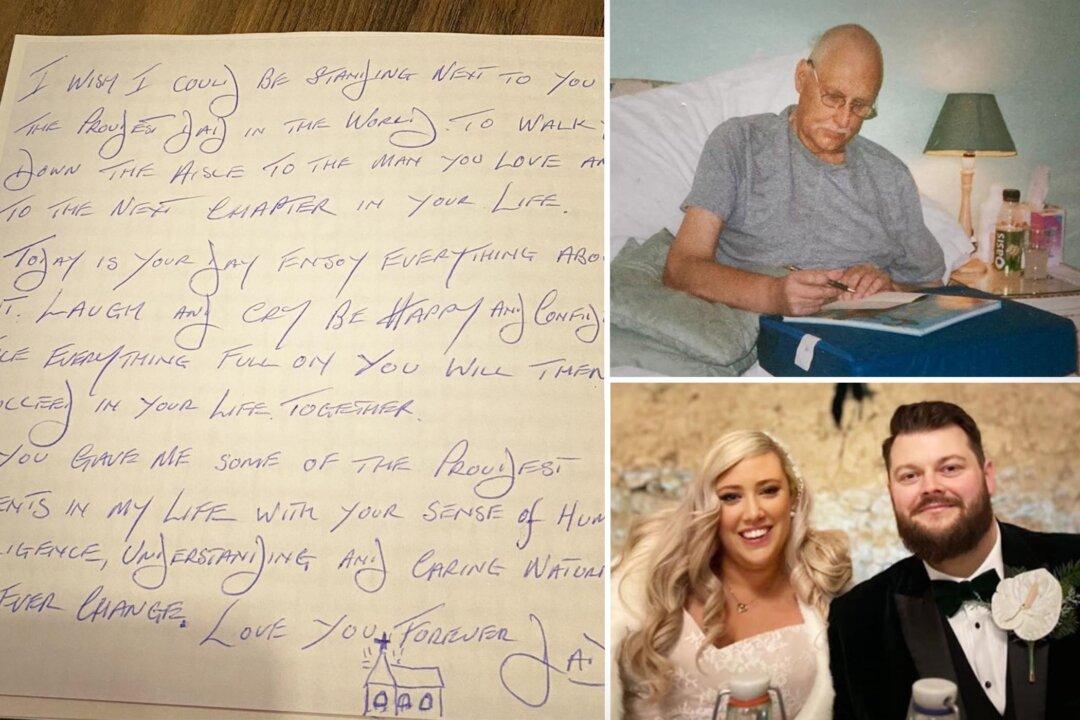 I WISH I COULD BE STANDING NEXT TO YOU
THE PROUDEST DAD IN THE WORLD. TO WALK
DOWN THE AISLE TO THE MAN YOU LOVE AN
TO THE NEXT CHAPTER IN YOUR LIFE.
TODAY IS YOUR DAY ENJOY EVERYTHING ABO
T. LAUGH AND CRY BE HAPPY AND CONFID
KE EVERYTHING FULL ON YOU WILL THEN
UCCEED IN YOUR LIFE TOGETHER.
YOU GAVE ME SOME OF THE PROUDEST
ENTS IN MY LIFE WITH YOUR SENSE of HUM
LIGENCE, UNDERSTANDING AND CARING NATUR
EVER CHANGE.
LOVE YOU FOREVER DAD
OASIS